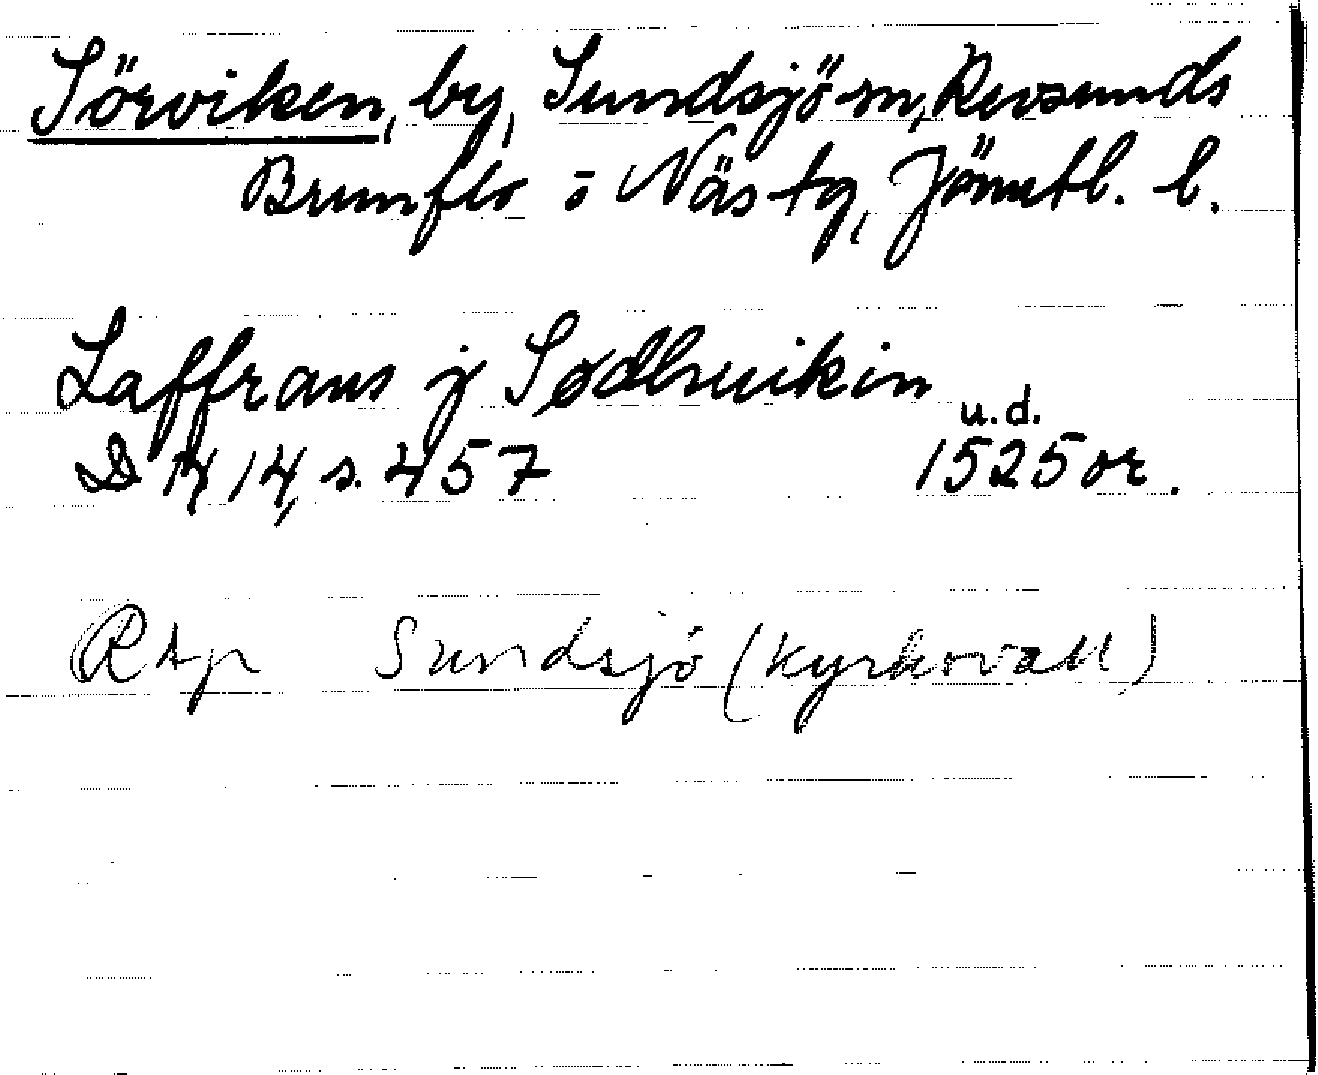 Sörviken, by, Sundsjö sn, Revsunds
Brunflo o Näs tg, Jämtl. l.
Laffrans j Sødhruikin
u.d.
D 14, s. 457 1525 or.
RAp Sundsjö (kyrkovall)